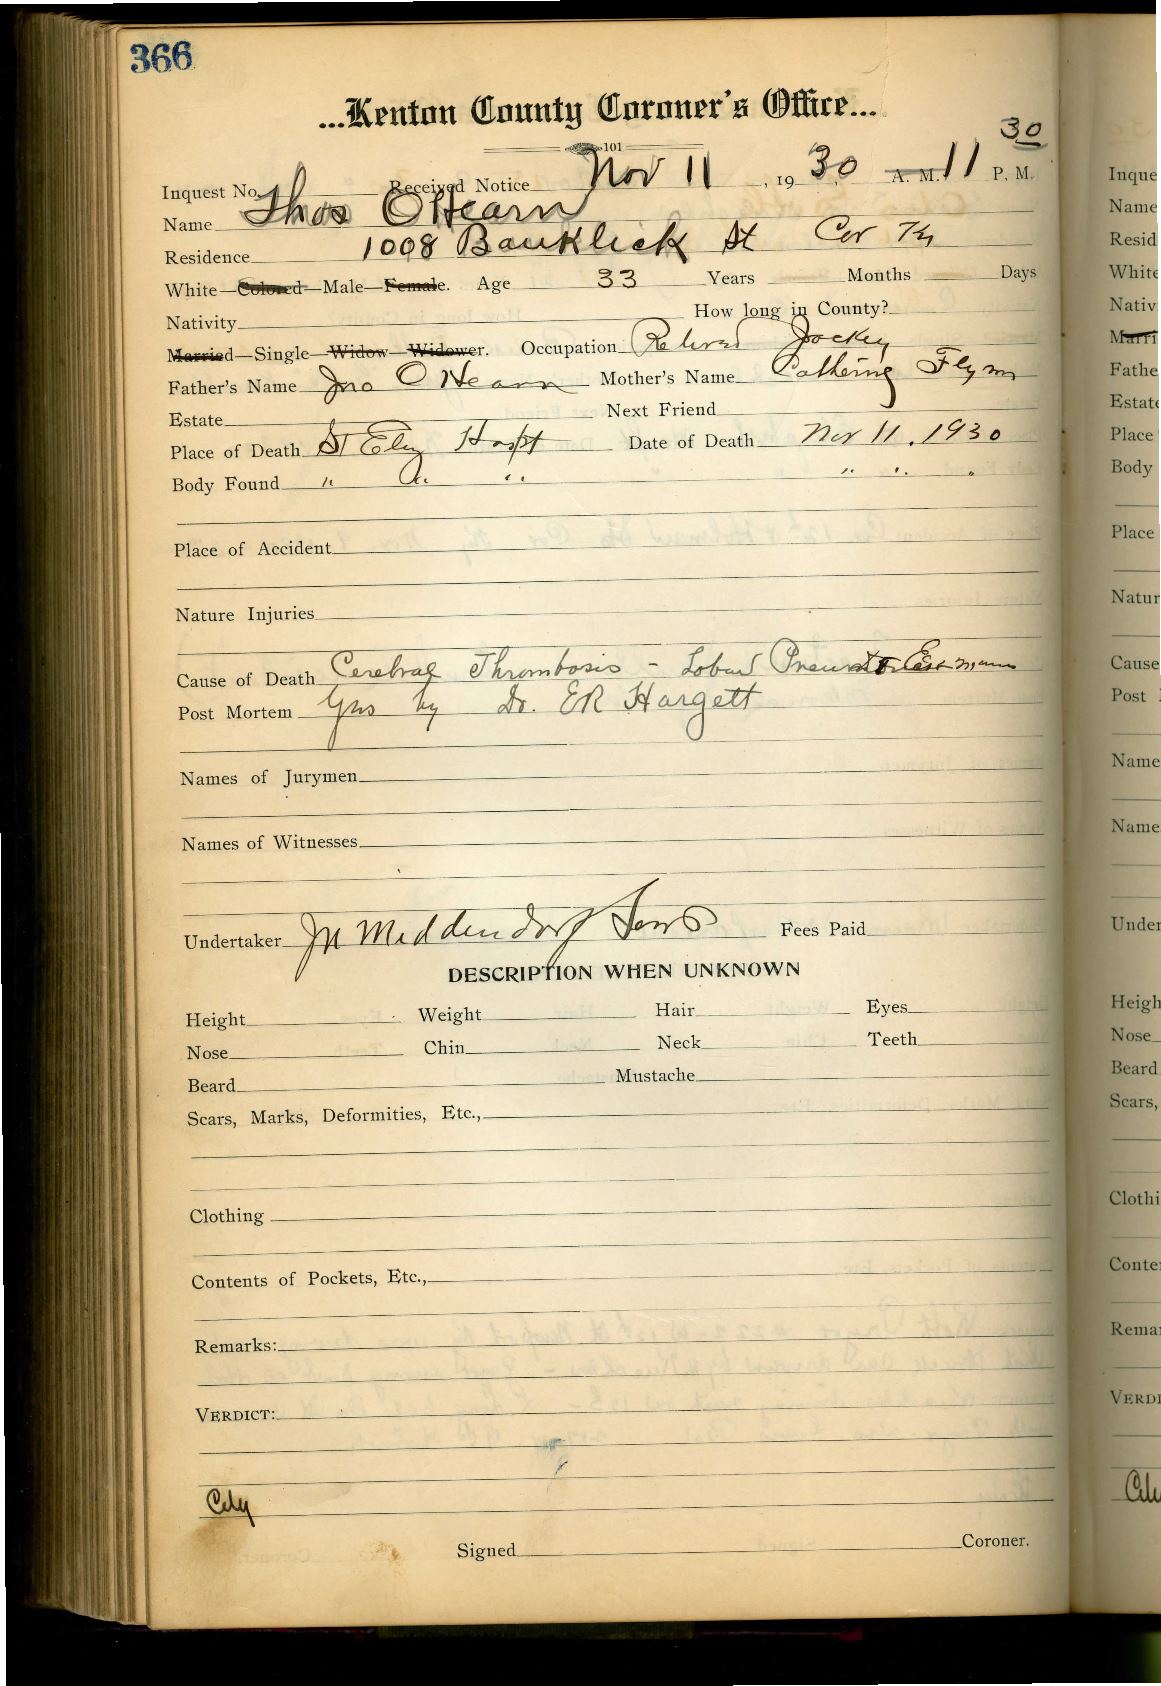 366
...Kenton County Coroner's Office...
101
30
Inquest No. Received Notice Nov 11, 1930 A. M. 11 P. M.
Name Thos OHearn
Residence 1008 Banklick St Cov Ky
White—Colored—Male—Female. Age 33 Years Months Days
Nativity How long in County?
Married—Single—Widow—Widower. Occupation Retired Jockey
Father's Name Jno O Hearn Mother's Name Catherine Flynn
Estate Next Friend
Place of Death St Eliz Hospt Date of Death Nov 11, 1930
Body Found " " " " " "
Place of Accident
Nature Injuries
Cause of Death Cerebral Thrombosis - Lobar
Post Mortem Yes by Dr. ER Hargett
Names of Jurymen
Names of Witnesses
Undertaker JN Middendorf Sons Fees Paid
DESCRIPTION WHEN UNKNOWN
Height Weight Hair Eyes
Nose Chin Neck Teeth
Beard Mustache
Scars, Marks, Deformities, Etc.,
Clothing
Contents of Pockets, Etc.,
Remarks:
VERDICT:
City
Signed Coroner.
Inque
Name
Resid
White
Nativ
Marri
Fathe
Estate
Place
Body
Place
Natur
Cause
Post
Name
Name
Under
Heigh
Nose
Beard
Scars,
Clothi
Conte
Remar
VERDI